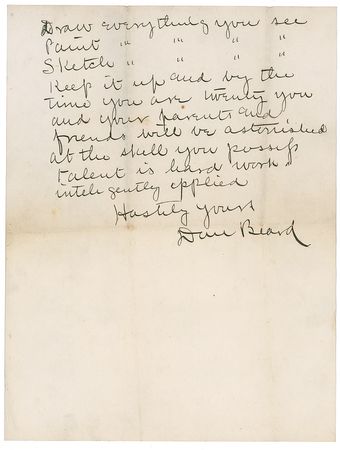 Draw everything you see
Paint " " " "
Sketch " " " "
Keep it up and by the
time you are twenty you
and your parents and
friends will be astonished
at the skill you possess
talent is hard work
inteligently applied
Hastily yours
Dan Beard